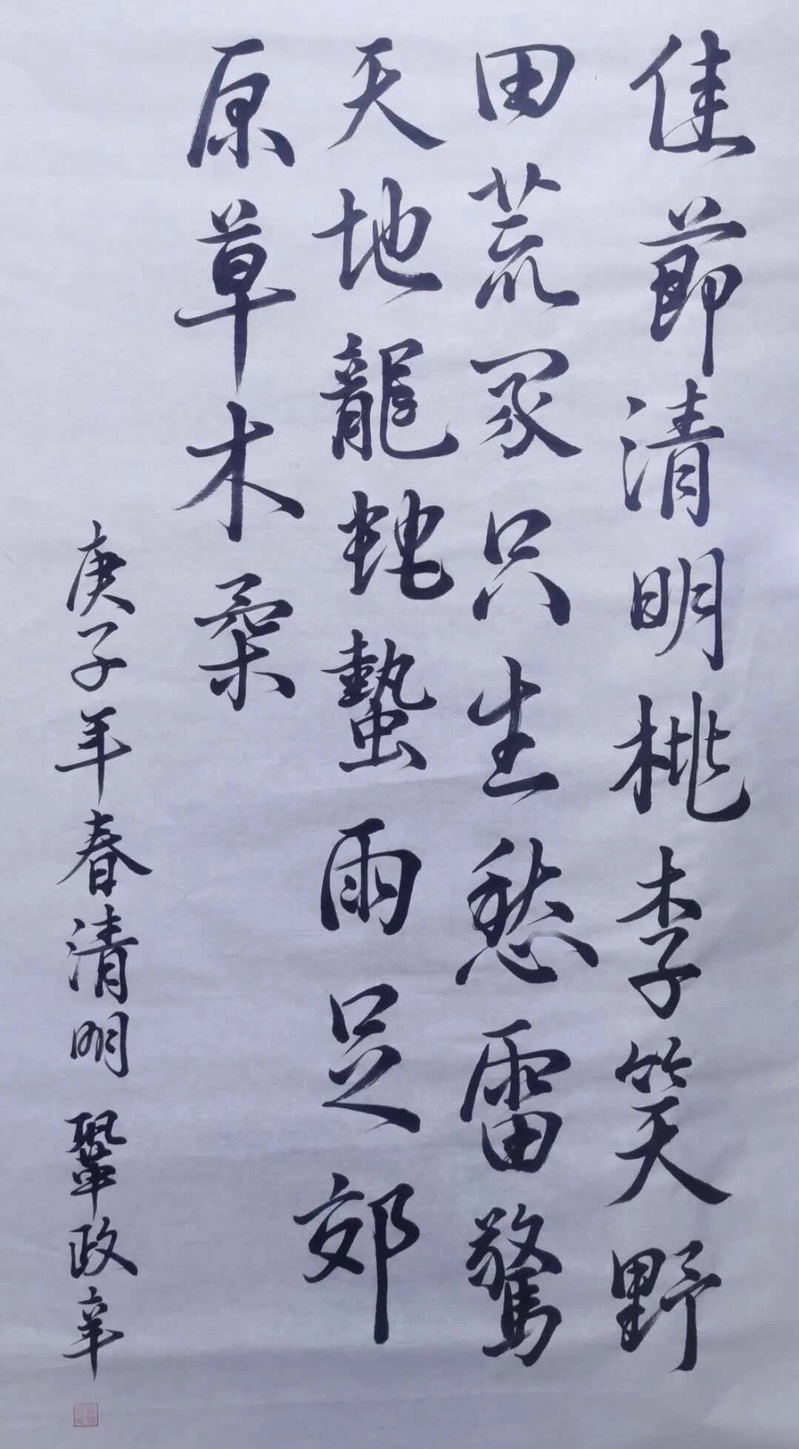 佳節清明桃李笑野
田荒冢只生愁雷驚
天地龍蛇蟄雨足郊
原草木柔
庚子年春清明 鞏政辛